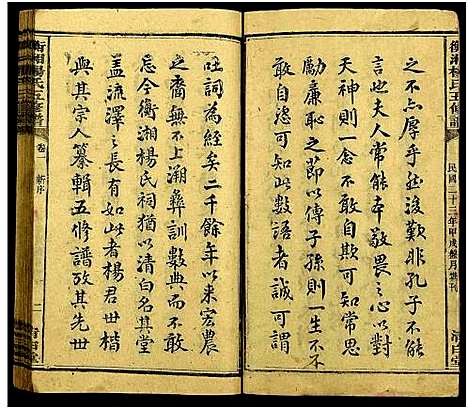 衡湘楊氏五修譜
民國二十三年甲戌
之不占厚乎然後歎非孔子不能
言也夫人常能本敬畏之心以對
天神則一念不敢自欺可知常思
勵廉恥之節以傳子孫則一生不
敢自恣可知此數語者誠可謂
吐詞為經矣二千餘年以來宏農
之裔無不上溯彝訓數典而不敢
忘今衡湘楊氏祠猶以清白名其堂
蓋流澤之長有如此者楊君世楷
與其宗人纂輯五修譜攷其先世
衡湘楊氏五修譜
卷一
新序
二
清白堂